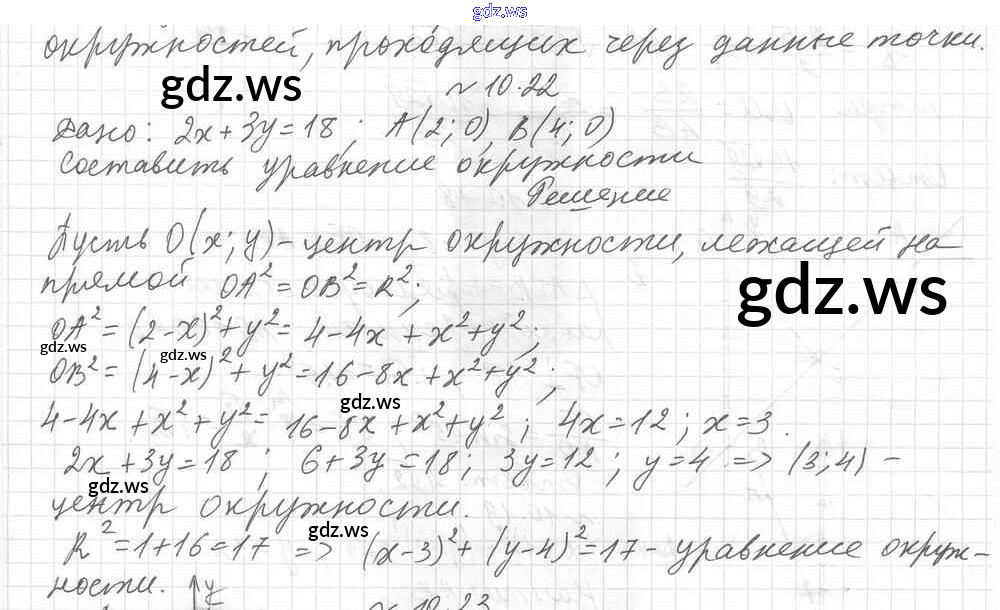 gdz.ws
окружностей, проходящих через данные точки.
№ 10.22
gdz.ws
Дано: 2x+3y=18; A(2;0), B(4;0)
Составить уравнение окружности
Решение
Пусть O(x;y)-центр окружности, лежащей на
прямой OA²=OB²=R²;
gdz.ws
OA²=(2-x)²+y²=4-4x+x²+y²;
gdz.ws gdz.ws
OB²=(4-x)²+y²=16-8x+x²+y²;
gdz.ws
4-4x+x²+y²=16-8x+x²+y²; 4x=12; x=3.
2x+3y=18; 6+3y=18; 3y=12; y=4 => (3;4) -
gdz.ws
центр окружности.
gdz.ws
R²=1+16=17 => (x-3)²+(y-4)²=17-уравнение окруж-
ности. y
№ 10.23